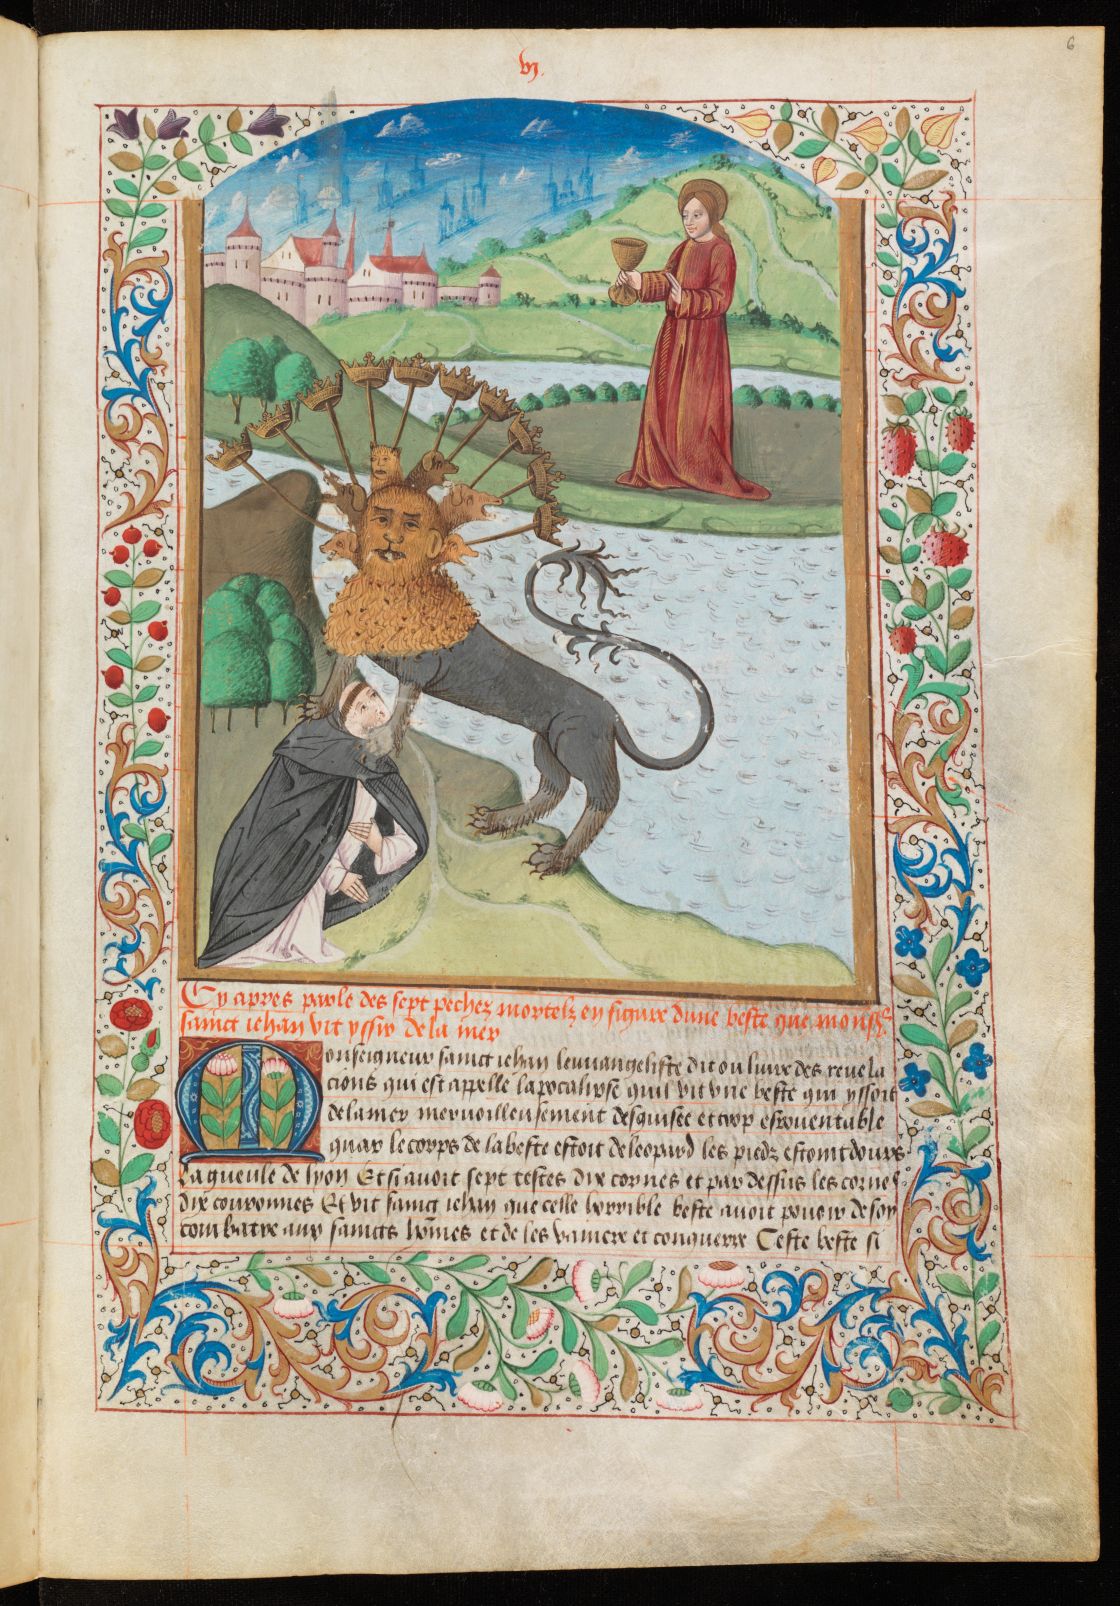 6
vj.
Cy apres parle des sept pechez mortelz en figure dune beste que mons
sainct iehan vit yssir de la mer
Monseigneur sainct iehan leuuangeliste dit ou liure des reuela
cions qui est appelle lapocalipse quil vit vne beste qui yssoit
de la mer merueilleusement desguisee et trop espouentable
quar le corps de la beste estoit de leopard les piedz estoint dours
La gueule de lyon Et si auoit sept testes dix cornes et par dessus les cornes
dix couronnes Et vit sainct iehan que celle horrible beste auoit pouoir de soy
combatre aux saincts hom̄es et de les vaincre et conquerre Ceste beste si